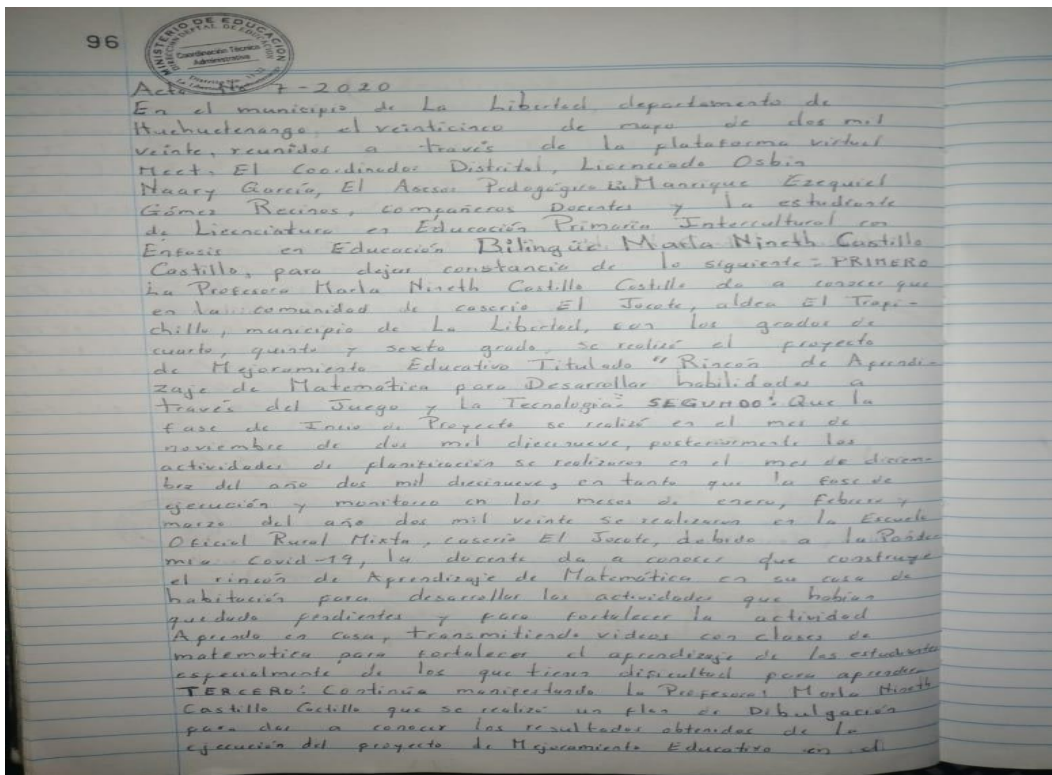 96
MINISTERIO DE EDUCACIÓN
DIRECCIÓN DEPTAL. DE EDUCACIÓN
Coordinación Técnica
Administrativa
Acta No. 7-2020
En el municipio de La Libertad, departamento de
Huehuetenango, el veinticinco de mayo de dos mil
veinte, reunidos a través de la plataforma virtual
Meet. El Coordinador Distrital, Licenciado Osbin
Naary García, El Asesor Pedagógico Lic. Manrique Ezequiel
Gómez Recinos, compañeros Docentes y la estudiante
de Licenciatura en Educación Primaria Intercultural con
Énfasis en Educación Bilingüe Marla Nineth Castillo
Castillo, para dejar constancia de lo siguiente: PRIMERO
La Profesora Marla Nineth Castillo Castillo da a conocer que
en la comunidad de caserío El Jocote, aldea El Trapi-
chillo, municipio de La Libertad, con los grados de
cuarto, quinto y sexto grado, se realizó el proyecto
de Mejoramiento Educativo Titulado "Rincón de Aprendi-
zaje de Matemática para Desarrollar habilidades a
través del Juego y La Tecnología". SEGUNDO: Que la
fase de Inicio de Proyecto se realizó en el mes de
noviembre de dos mil diecinueve, posteriormente las
actividades de planificación se realizaron en el mes de diciem-
bre del año dos mil diecinueve, en tanto que la fase de
ejecución y monitoreo en los meses de enero, febrero y
marzo del año dos mil veinte se realizaron en la Escuela
Oficial Rural Mixta, caserío El Jocote, debido a la Pande
mia Covid-19, la docente da a conocer que construyó
el rincón de Aprendizaje de Matemática en su casa de
habitación para desarrollar las actividades que habían
quedado pendientes y para fortalecer la actividad
Aprendo en casa, transmitiendo videos con clases de
matemática para fortalecer el aprendizaje de los estudiantes
especialmente de los que tienen dificultad para aprender
TERCERO: Continúa manifestando la Profesora: Marla Nineth
Castillo Castillo que se realizó un plan de Dibulgación
para dar a conocer los resultados obtenidos de la
ejecución del proyecto de Mejoramiento Educativo en el